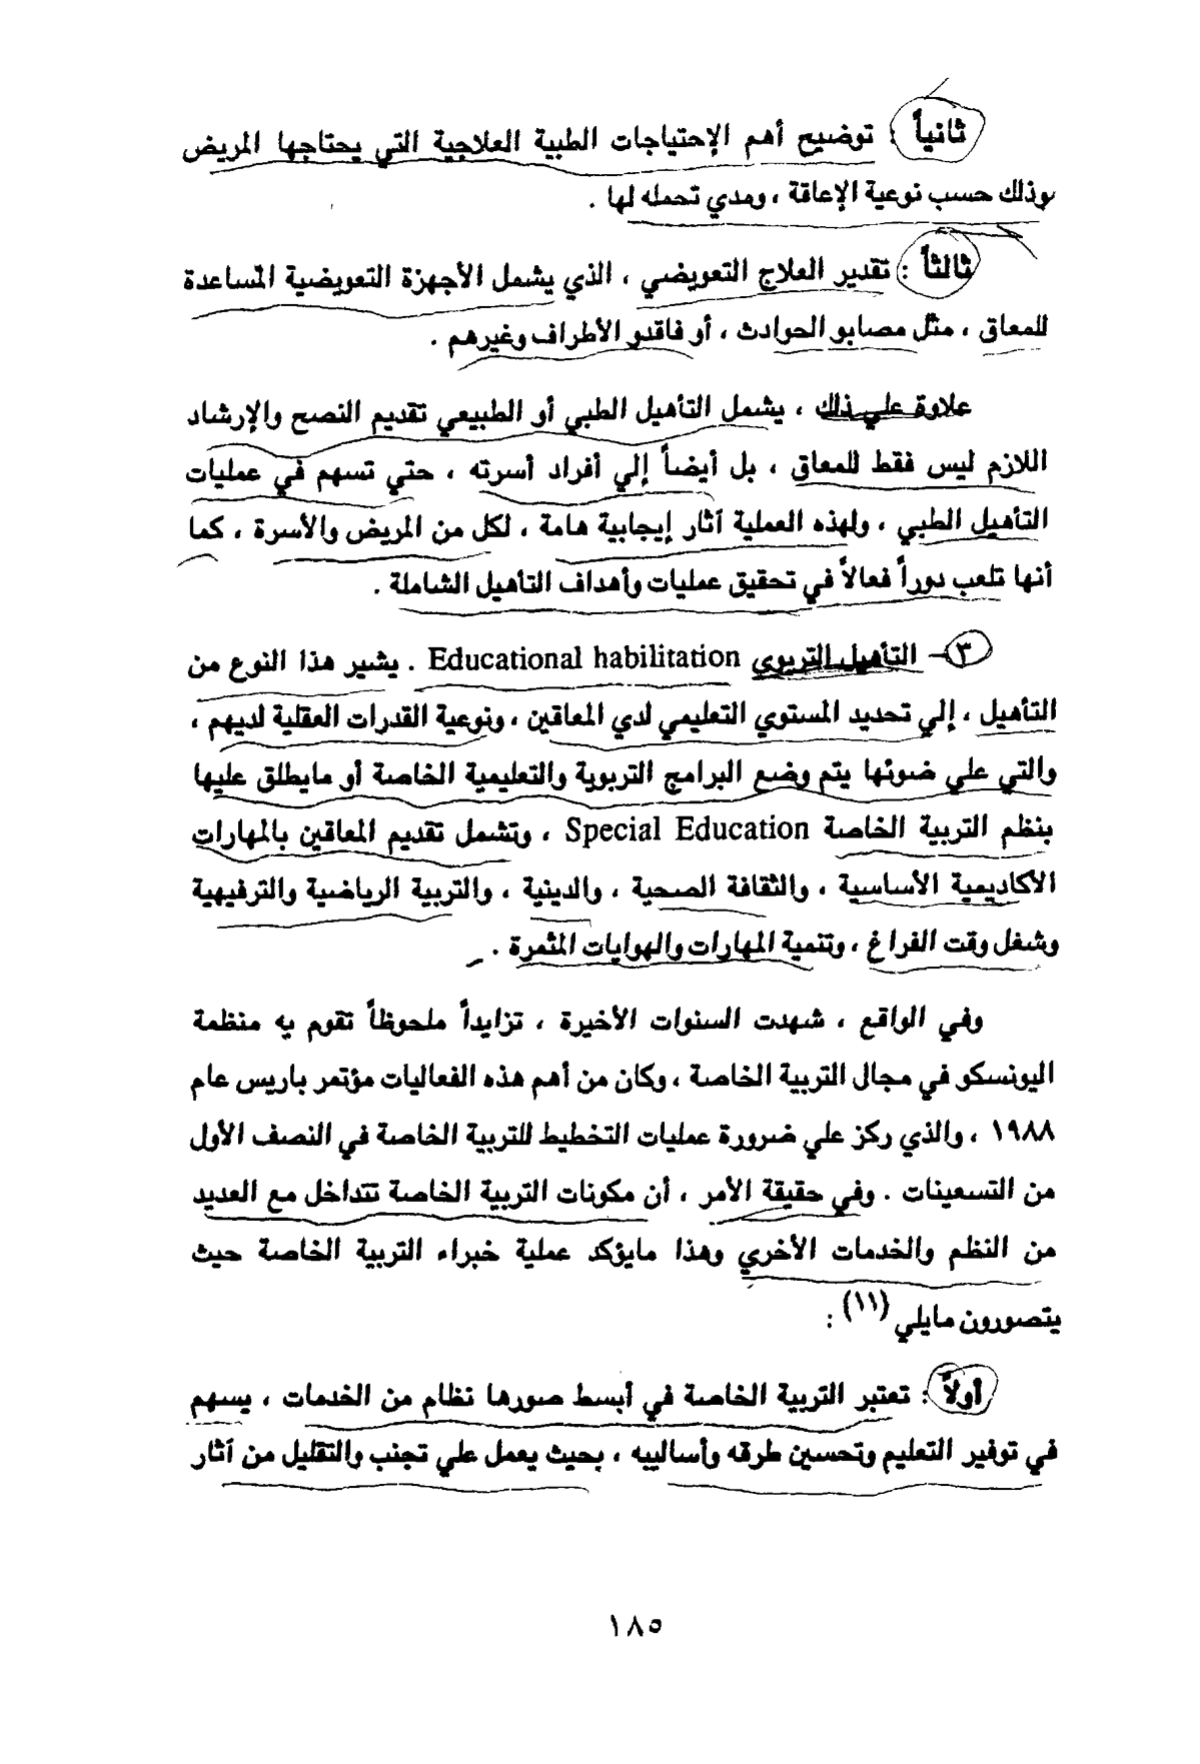 ثانياً : توضيح أهم الإحتياجات الطبية العلاجية التي يحتاجها المريض
وذلك حسب نوعية الإعاقة ، ومدي تحمله لها .
ثالثاً : تقدير العلاج التعويضي ، الذي يشمل الأجهزة التعويضية المساعدة
للمعاق ، مثل مصابو الحوادث ، أو فاقدو الأطراف وغيرهم .
علاوة علي ذلك ، يشمل التأهيل الطبي أو الطبيعي تقديم النصح والإرشاد
اللازم ليس فقط للمعاق ، بل أيضاً إلي أفراد أسرته ، حتي تسهم في عمليات
التأهيل الطبي ، ولهذه العملية آثار إيجابية هامة ، لكل من المريض والأسرة ، كما
أنها تلعب دوراً فعالاً في تحقيق عمليات وأهداف التأهيل الشاملة .
٣ - التأهيل التربوي Educational habilitation . يشير هذا النوع من
التأهيل ، إلي تحديد المستوي التعليمي لدي المعاقين ، ونوعية القدرات العقلية لديهم ،
والتي علي ضوئها يتم وضع البرامج التربوية والتعليمية الخاصة أو مايطلق عليها
بنظم التربية الخاصة Special Education ، وتشمل تقديم المعاقين بالمهارات
الأكاديمية الأساسية ، والثقافة الصحية ، والدينية ، والتربية الرياضية والترفيهية
وشغل وقت الفراغ ، وتنمية المهارات والهوايات المثمرة .
وفي الواقع ، شهدت السنوات الأخيرة ، تزايداً ملحوظاً تقوم به منظمة
اليونسكو في مجال التربية الخاصة ، وكان من أهم هذه الفعاليات مؤتمر باريس عام
١٩٨٨ ، والذي ركز علي ضرورة عمليات التخطيط للتربية الخاصة في النصف الأول
من التسعينات . وفي حقيقة الأمر ، أن مكونات التربية الخاصة تتداخل مع العديد
من النظم والخدمات الأخري وهذا مايؤكد عملية خبراء التربية الخاصة حيث
يتصورون مايلي (١١) :
أولاً : تعتبر التربية الخاصة في أبسط صورها نظام من الخدمات ، يسهم
في توفير التعليم وتحسين طرقه وأساليبه ، بحيث يعمل علي تجنب والتقليل من آثار
١٨٥